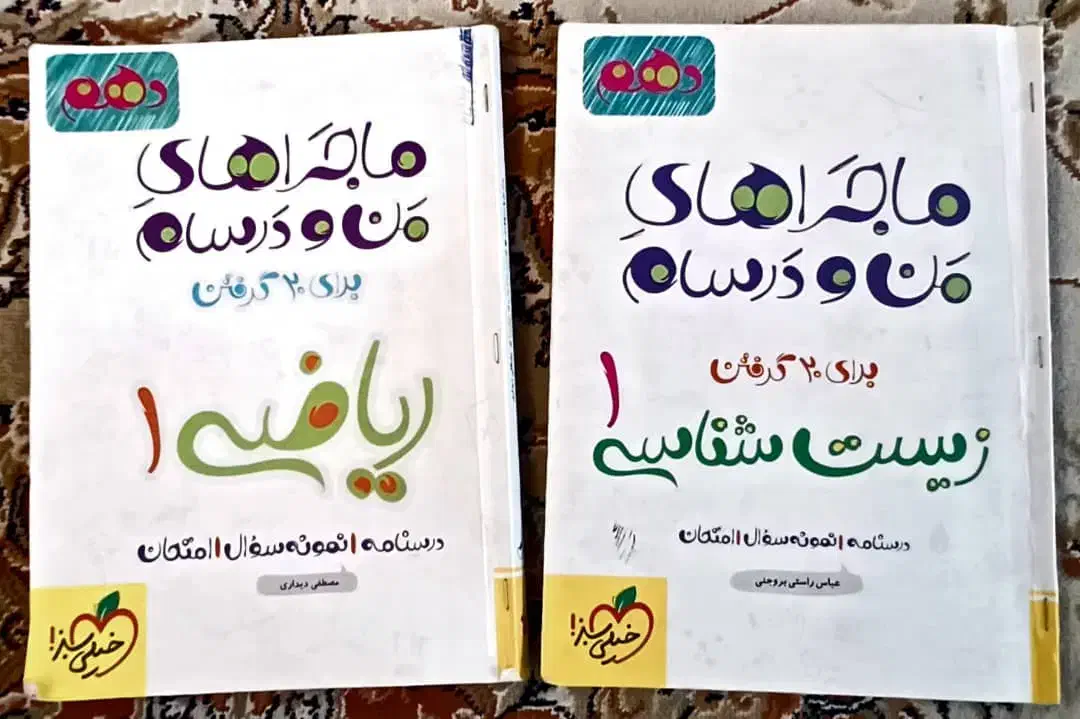 دهم
ماجراهای
من و درسام
برای ۲۰ گرفتن
ریاضی ۱
درسنامه | نمونه سؤال | امتحان
مصطفی دیداری
خیلی سبز!
دهم
ماجراهای
من و درسام
برای ۲۰ گرفتن
زیست شناسی ۱
درسنامه | نمونه سؤال | امتحان
عباس راستی بروجنی
خیلی سبز!